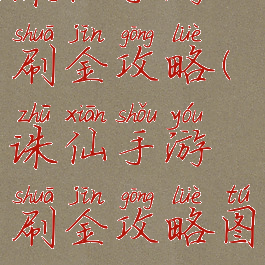 shuā jīn gōng lüè
刷金攻略(
zhū xiān shǒu yóu
诛仙手游
shuā jīn gōng lüè tú
刷金攻略图